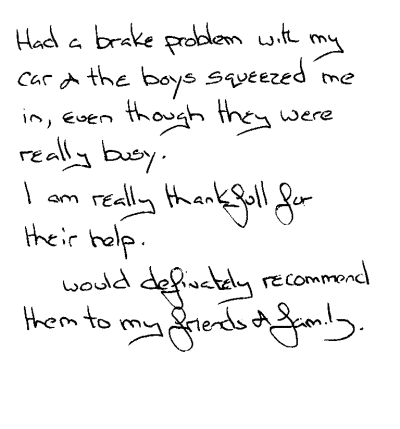 Had a brake problem with my
car & the boys squeezed me
in, even though they were
really busy.
I am really thankfull for
their help.
would definately recommend
them to my friends & family.